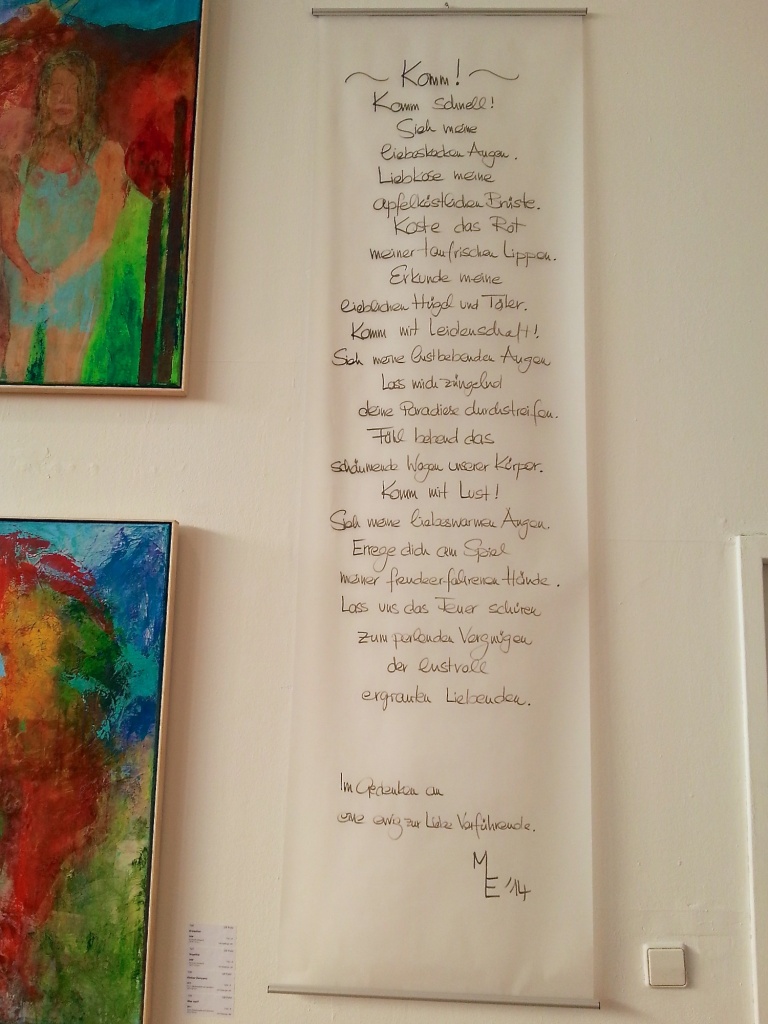 ~ Komm! ~
Komm schnell!
Sieh meine
liebeskecken Augen.
Liebkose meine
apfelköstlichen Brüste.
Koste das Rot
meiner taufrischen Lippen.
Erkunde meine
lieblichen Hügel und Täler.
Komm mit Leidenschaft!
Sieh meine lustbebenden Augen
Lass mich züngelnd
deine Paradiese durchstreifen.
Fühl bebend das
schäumende Wogen unserer Körper.
Komm mit Lust!
Sieh meine liebeswarmen Augen.
Errege dich am Spiel
meiner freudeerfahrenen Hände.
Lass uns das Feuer schüren
zum perlenden Vergnügen
der lustvoll
ergrauten Liebenden.
Im Gedenken an
eine ewig zur Liebe Verführende.
M
E '14